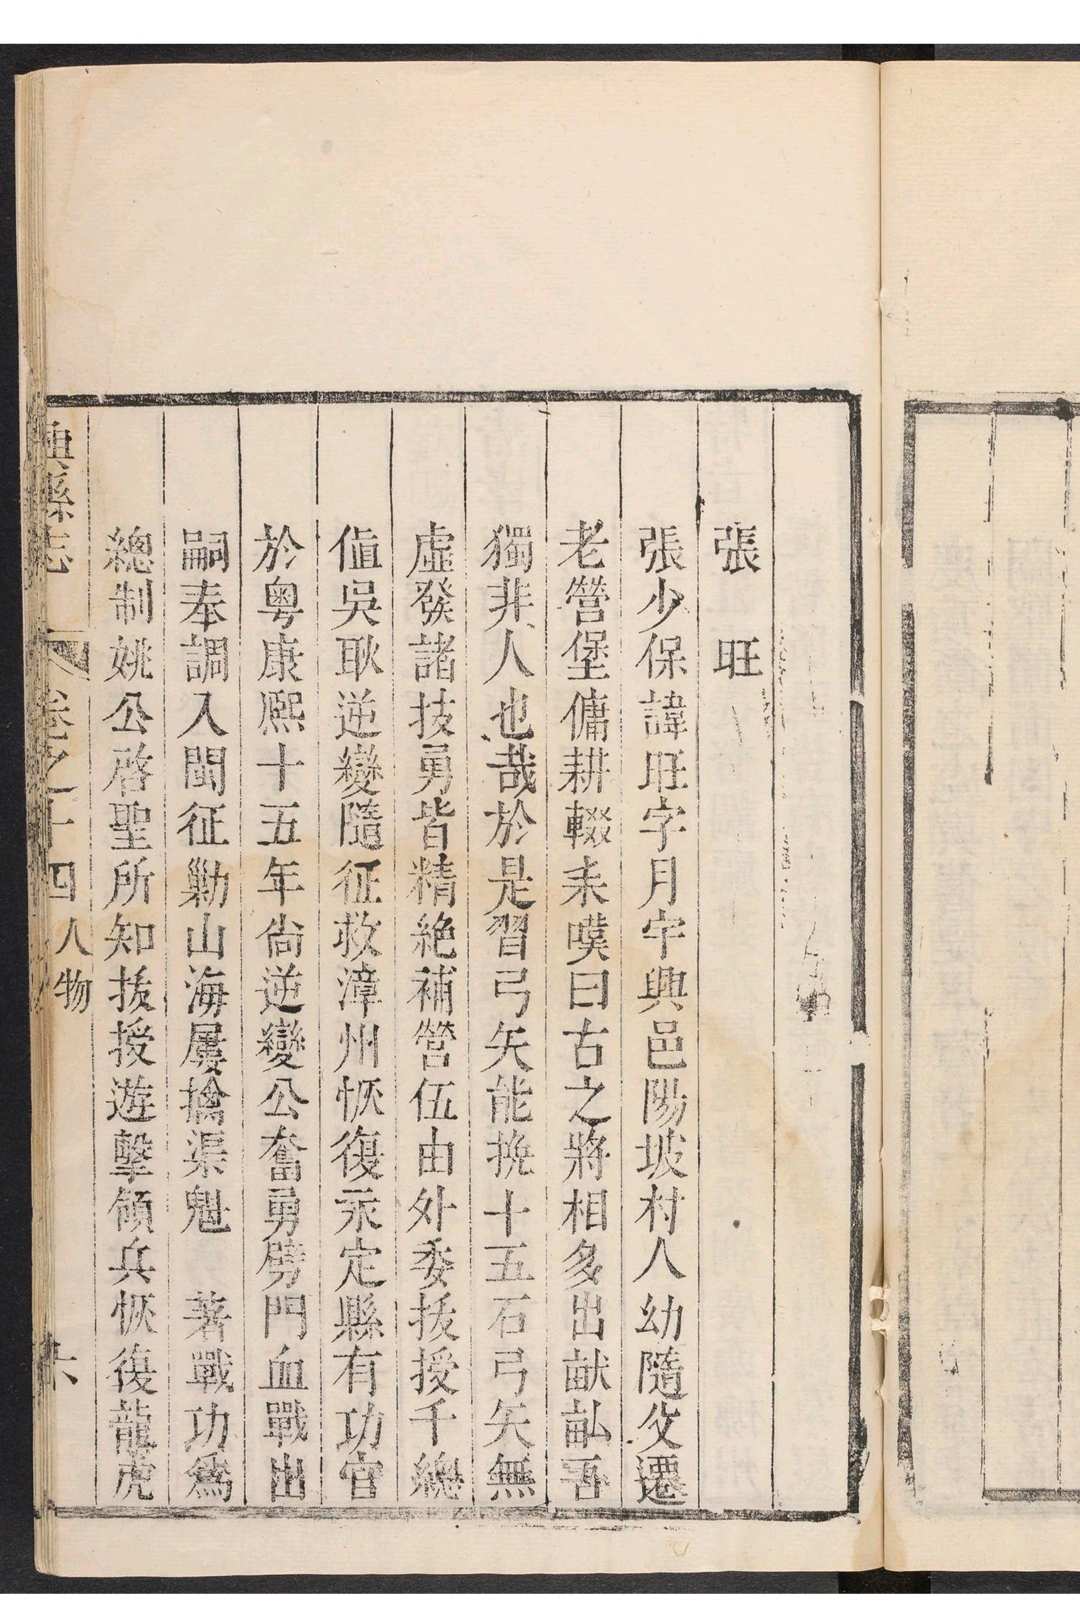 張　旺
張少保諱旺字月宇興邑陽坡村人幼隨父遷
老營堡傭耕輟耒嘆曰古之將相多出畎畝吾
獨非人也哉於是習弓矢能挽十五石弓矢無
虛發諸技勇皆精絶補營伍由外委拔授千總
值吳耿逆變隨征救漳州恢復永定縣有功官
於粤康熙十五年尚逆變公奮勇劈門血戰出
嗣奉調入閩征勦山海屢擒渠魁　著戰功爲
總制姚公啓聖所知拔授遊擊領兵恢復龍虎
興縣志　卷之十四 人物　六